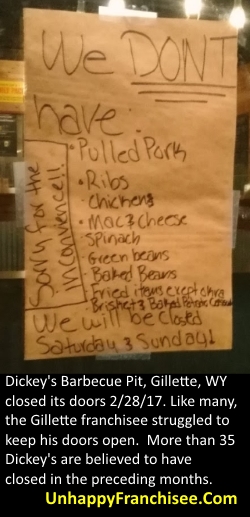 We DONT
have:
• Pulled Pork
• Ribs
• Chickens
• Mac & Cheese
• Spinach
• Green beans
• Baked Beans
Fried items exept okra
Brisket & Baked
Sorry for the
inconvence!!
We will be closed
Saturday & Sunday!
Dickey's Barbecue Pit, Gillette, WY
closed its doors 2/28/17. Like many,
the Gillette franchisee struggled to
keep his doors open.  More than 35
Dickey's are believed to have
closed in the preceding months.
UnhappyFranchisee.Com